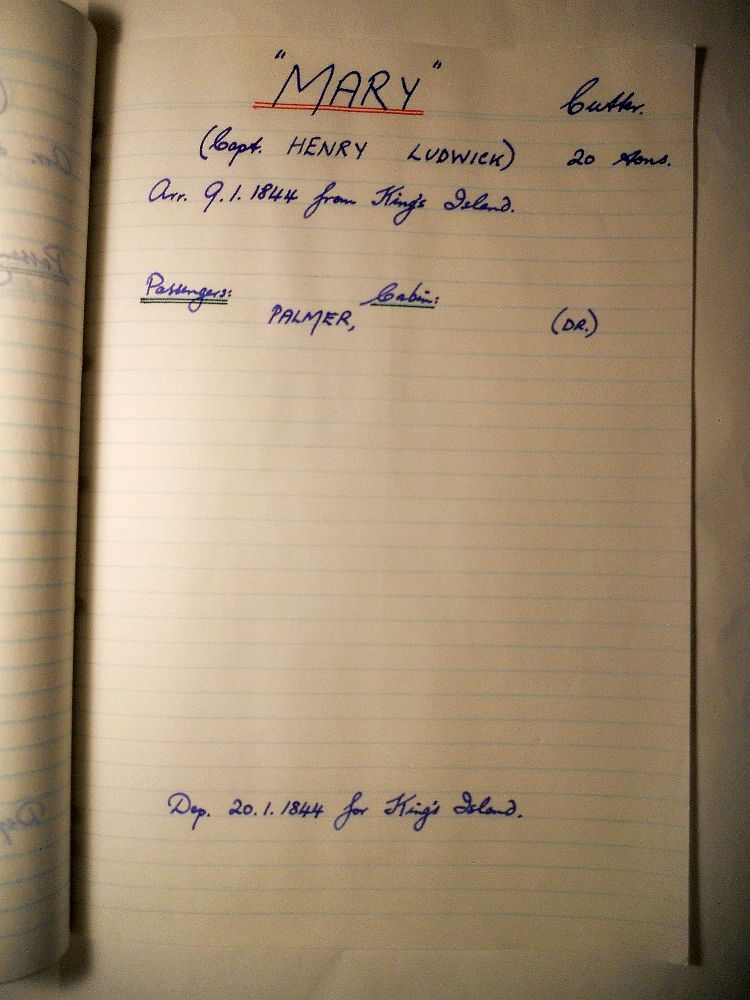 "MARY" Cutter.
(Capt. HENRY LUDWICK) 20 tons.
Arr. 9.1.1844 from King's Island.
Passengers: Cabin:
PALMER, (DR.)
Dep. 20.1.1844 for King's Island.